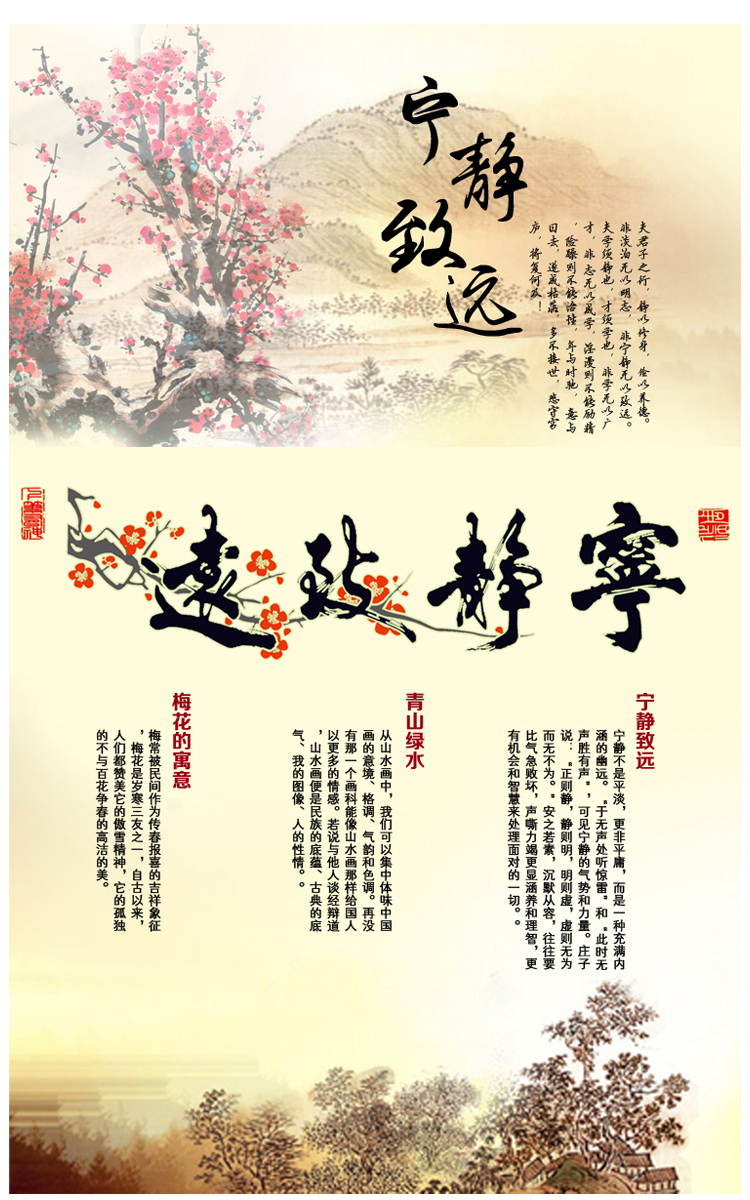 宁静致远
夫君子之行，静以修身，俭以养德。
非淡泊无以明志，非宁静无以致远。
夫学须静也，才须学也，非学无以广
才，非志无以成学，淫漫则不能励精
，险躁则不能治性，年与时驰，意与
日去，遂成枯落，多不接世，悲守穷
庐，将复何及！
寧静致遠
宁静致远
宁静不是平淡，更非平庸，而是一种充满内
涵的幽远。“于无声处听惊雷”和“此时无
声胜有声”，可见宁静的气势和力量。庄子
说：“正则静，静则明，明则虚，虚则无为
而无不为。”安之若素，沉默从容，往往要
比气急败坏，声嘶力竭更显涵养和理智，更
有机会和智慧来处理面对的一切。。
青山绿水
从山水画中，我们可以集中体味中国
画的意境、格调、气韵和色调。再没
有那一个画科能像山水画那样给国人
以更多的情感。若说与他人谈经辩道
，山水画便是民族的底蕴、古典的底
气、我的图像、人的性情。。
梅花的寓意
梅常被民间作为传春报喜的吉祥象征
，梅花是岁寒三友之一，自古以来，
人们都赞美它的傲雪精神，它的孤独
的不与百花争春的高洁的美。